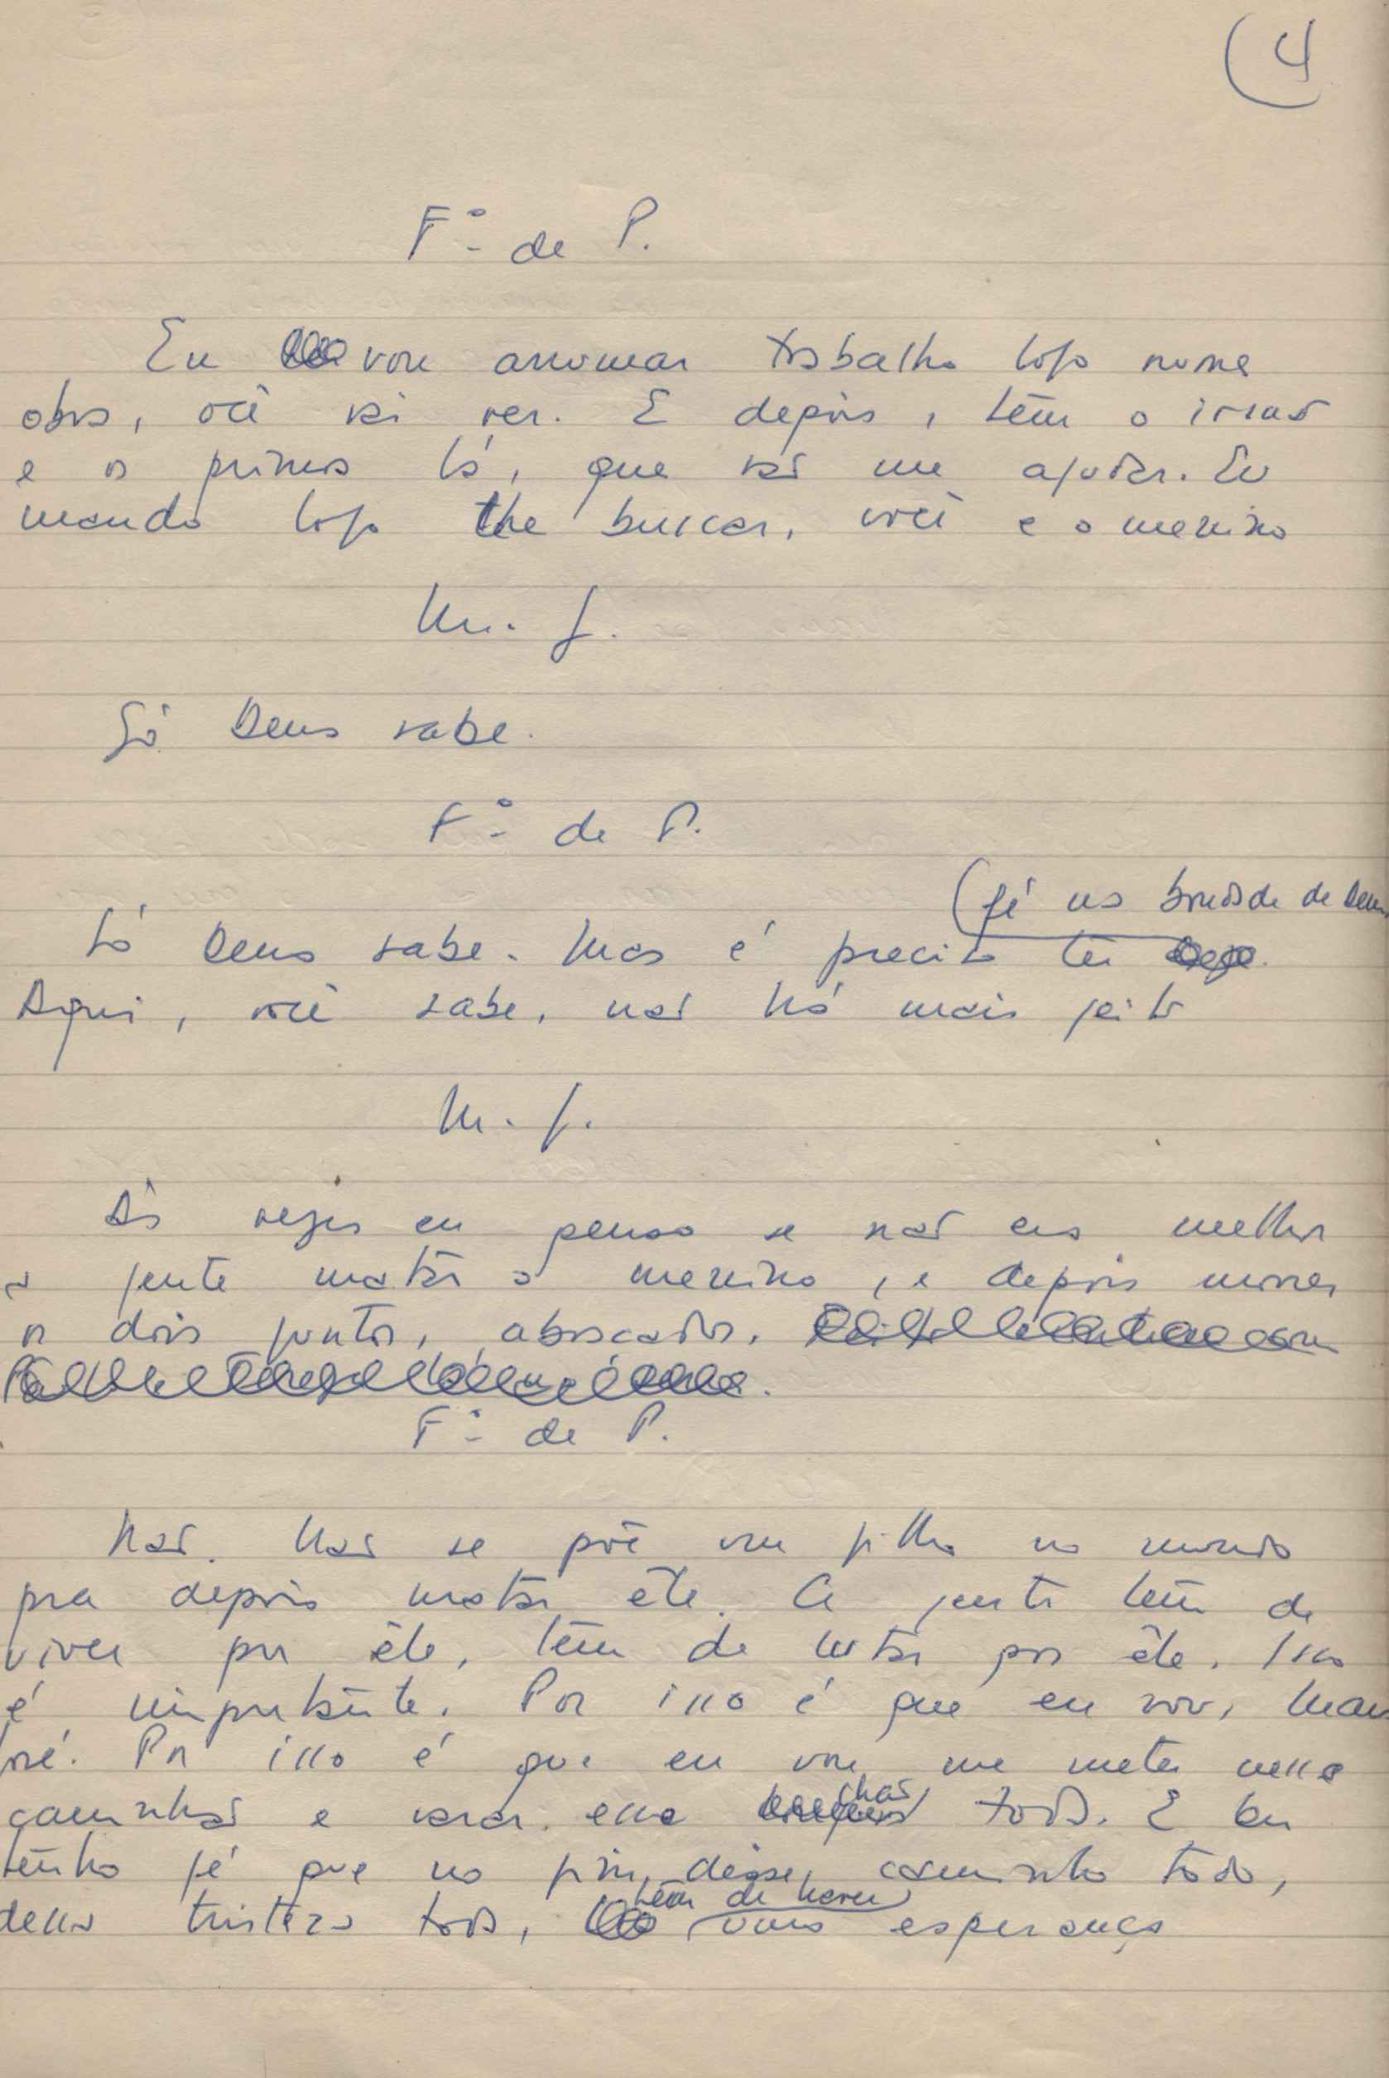 4
Fº de P.
Eu vou arrumar trabalho logo numa
obra, você vai ver. E depois, têm o irmão
e os primos lá, que vão me ajudar. Eu
mando logo lhe buscar, você e o menino
M. J.
Só Deus sabe.
Fº de P.
(fé na bondade de Deus
Só Deus sabe. Mas é preciso ter
Aqui, você sabe, não há mais jeito
M. J.
Às vezes eu penso se não era melhor
a gente matar o menino, e depois morrer
os dois juntos, abraçados.
Fº de P.
Não. Não se põe um filho no mundo
pra depois matar êle. A gente têm de
viver por êle, têm de lutar por êle. Isso
é importante. Por isso é que eu vou, Maria
José. Por isso é que eu vou me meter nesse
caminhão e varar esse chão todo. E eu
tenho fé que no fim dêsse caminho todo,
têm de haver
dessa tristeza toda, uma esperança